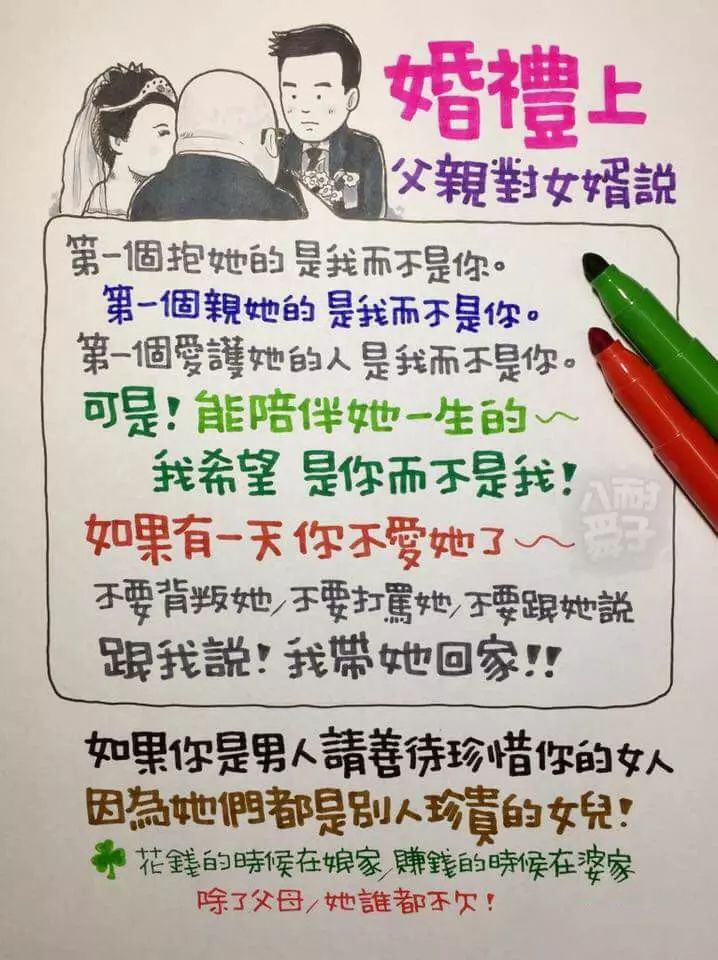 婚禮上
父親對女婿説
第一個抱她的 是我而不是你。
第一個親她的 是我而不是你。
第一個愛護她的人 是我而不是你。
可是! 能陪伴她一生的~
我希望 是你而不是我!
如果有一天 你不愛她了~~
不要背叛她/不要打罵她/不要跟她説
跟我説! 我帶她回家!!
如果你是男人請善待珍惜你的女人
因為她們都是別人珍貴的女兒!
花錢的時候在娘家/賺錢的時候在婆家
除了父母/她誰都不欠!